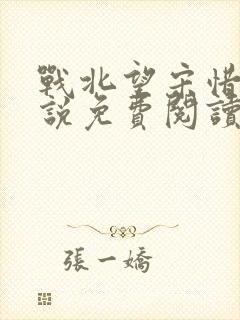 戰北望宋惜
說免費閱讀
張一嬌